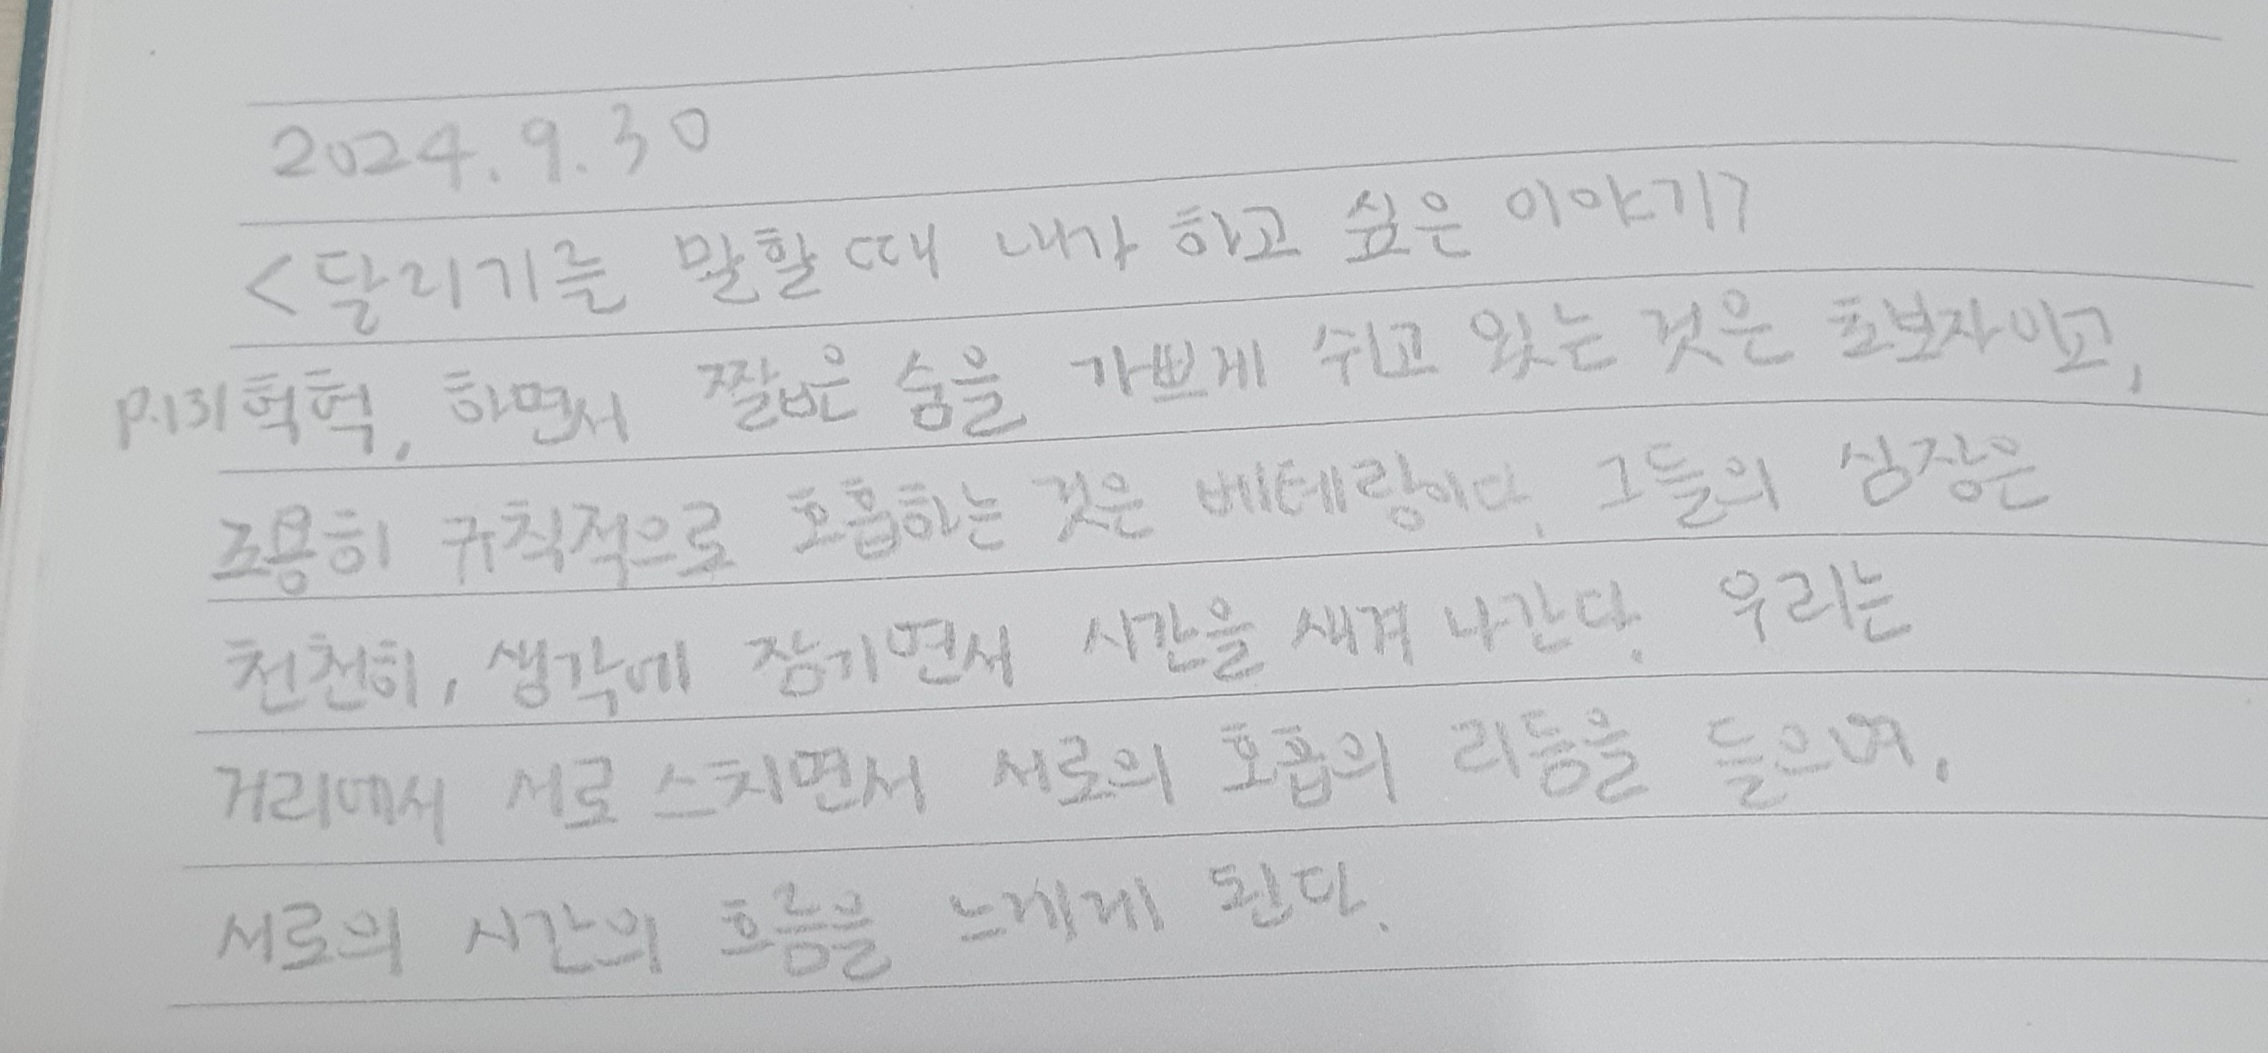 2024. 9. 30
<달리기를 말할 때 내가 하고 싶은 이야기>
p.131 헉헉, 하면서 짧은 숨을 가쁘게 쉬고 있는 것은 초보자이고,
조용히 규칙적으로 호흡하는 것은 베테랑이다. 그들의 심장은
천천히, 생각에 잠기면서 시간을 새겨 나간다. 우리는
거리에서 서로 스치면서 서로의 호흡의 리듬을 들으며,
서로의 시간의 흐름을 느끼게 된다.